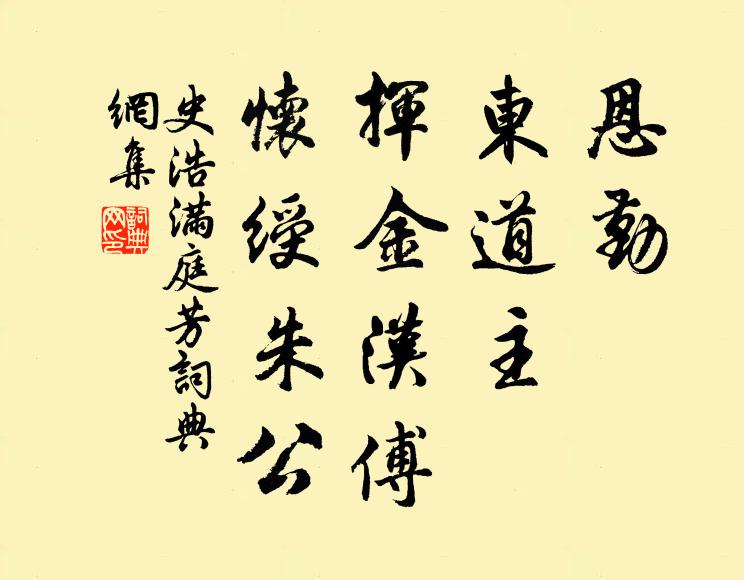 恩勤
東道主
揮金漢傅
懷綬朱公
史浩滿庭芳詞典
網集
詞典
网印